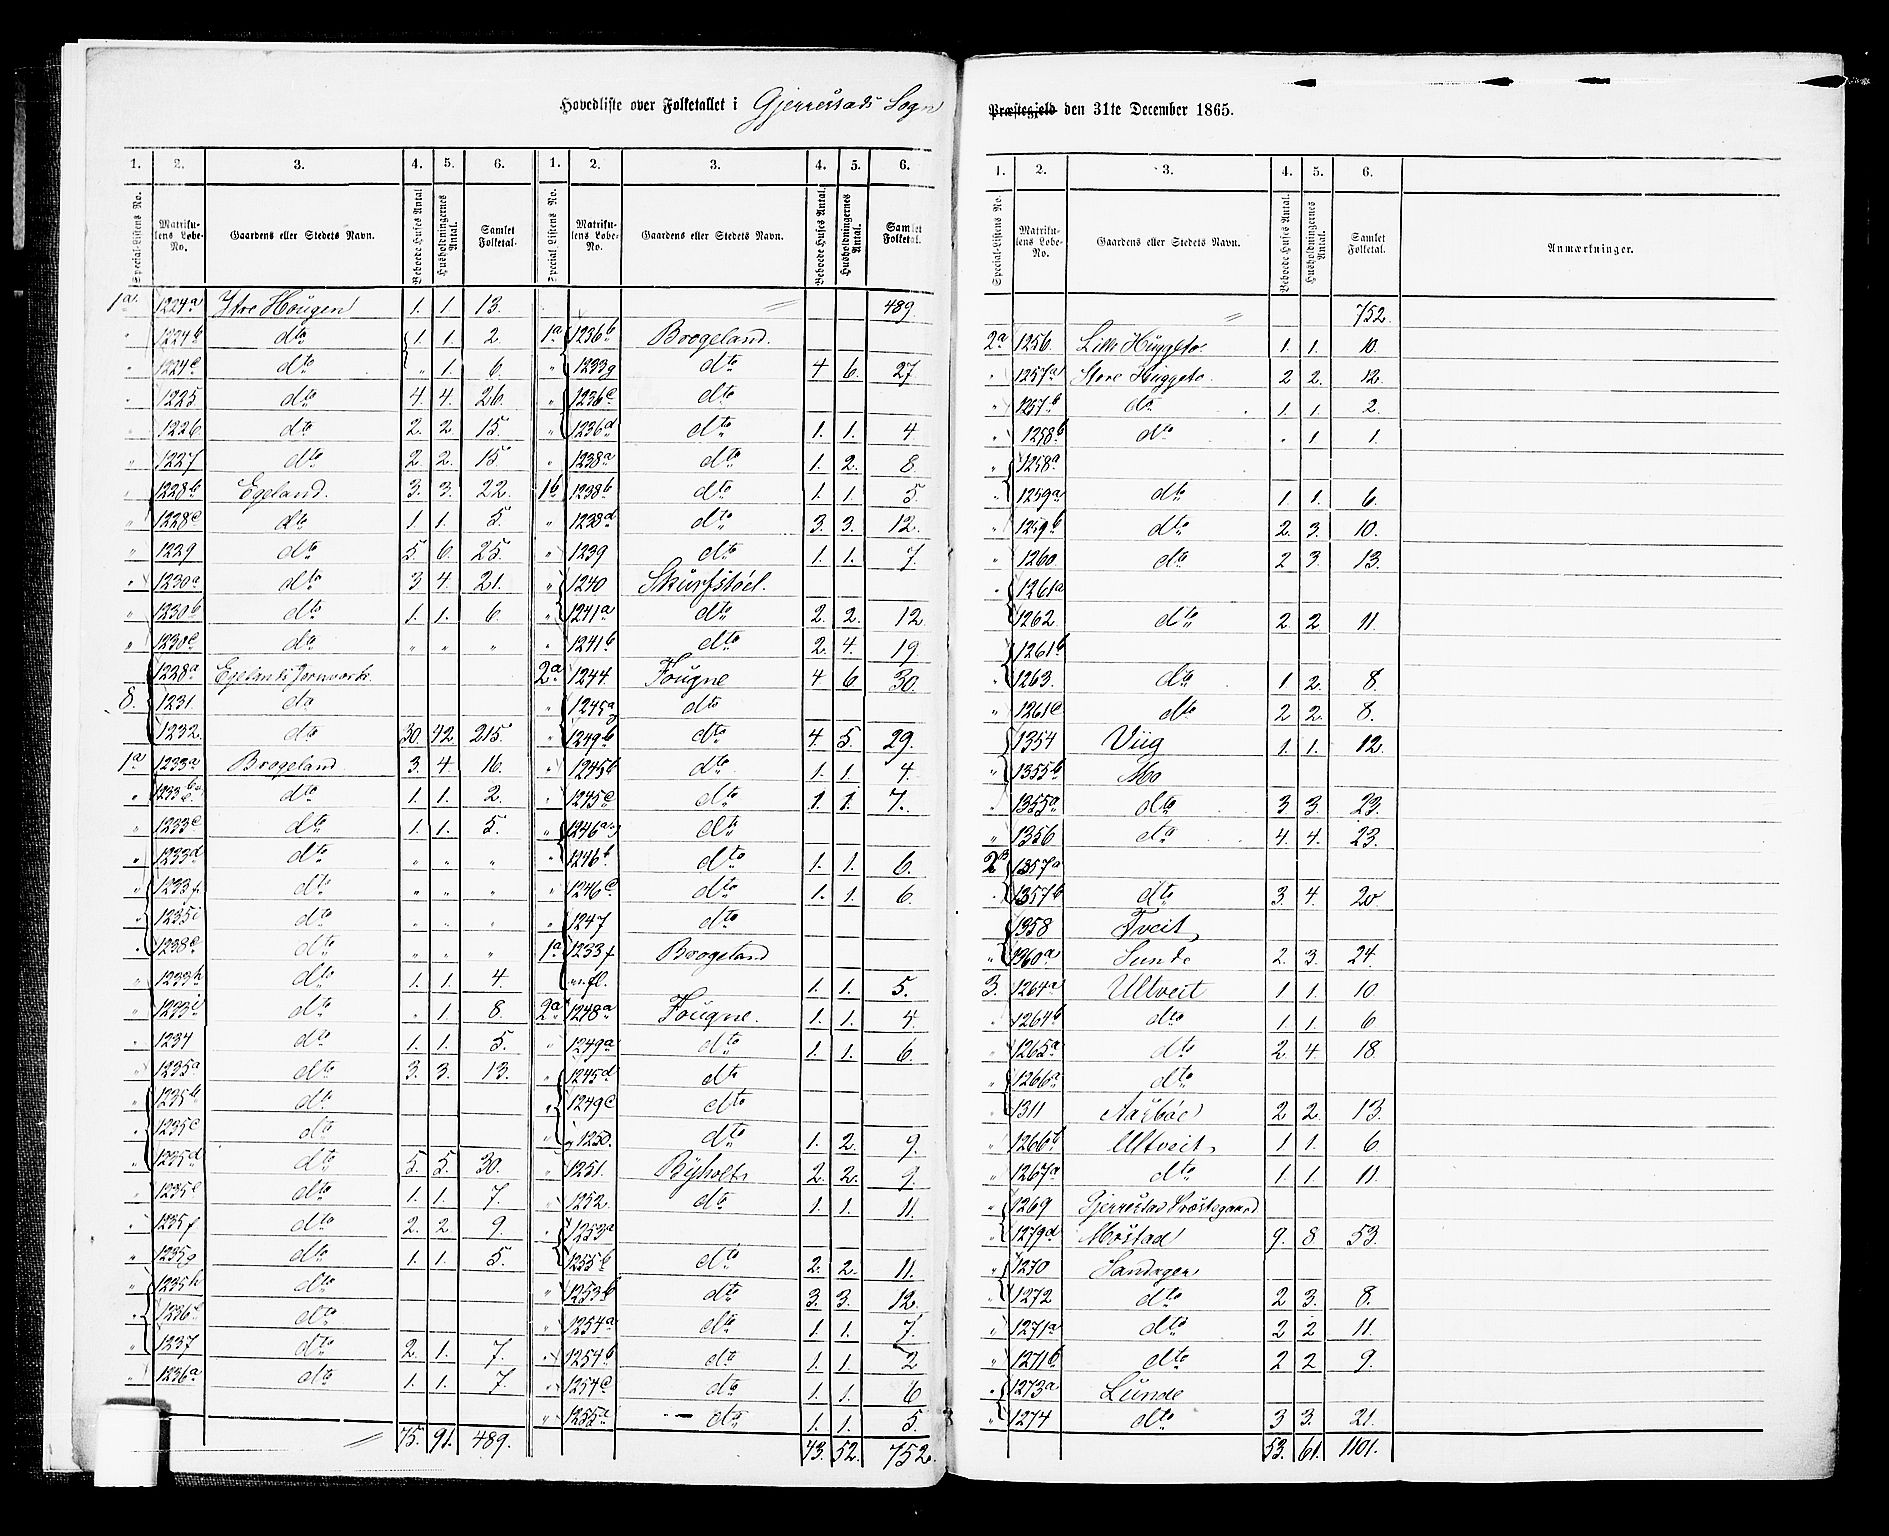 Hovedliste over Folketallet i Gjerrestads Sogn
Præstegjeld den 31te December 1865.
1. 2. 3. 4. 5. 6. 1. 2. 3. 4. 5. 6.
Special-Listens No. Matrikulens Løbe-No. Gaardens eller Stedets Navn. Beboede Huses Antal Husholdningernes Antal. Samlet Folketal. Special-Listens No. Matrikulens Løbe-No. Gaardens eller Stedets Navn. Beboede Huses Antal. Husholdningernes Antal. Samlet Folketal.
1a. 1224a Ytre Hougen 1. 1. 13.
" 1224b dto 1. 1. 2.
" 1224c dto " 1. 6.
" 1225 dto 4. 4. 26.
" 1226 dto 2. 2. 15.
" 1227 dto 2. 2. 15.
" 1228b Egeland. 3. 3. 22.
" 1228c dto 1. 1. 5.
" 1229 dto 5. 6. 25.
" 1230a dto 3 4. 21.
" 1230b dto 1. 1. 6.
" 1230c do " " "
1228a Egelands Jernværk
8. 1231 do
1232 do 30. 42 215.
1a 1233a Brogeland 3. 4. 16.
" 1233b dto 1. 1. 2.
" 1233c dto 1. 1. 5.
" 1233d dto " " "
" 1233f dto " " "
" 1235i dto " " "
" 1238c dto " " "
" 1233h dto 1. 1. 4.
" 1233i dto " 1. 8.
" 1234 dto 1. 1. 5.
" 1235a dto 3. 3. 13.
" 1235b dto
" 1235c dto
" 1235d dto 5. 5. 30.
" 1235e dto 1. 1. 7.
" 1235f dto 2. 2. 9.
" 1235g dto 1. 1. 5.
" 1235h dto
" 1236 dto
" 1237 dto 2. 1. 7.
" 1236a dto 1. 1. 7.
75. 91. 489.
489.
1a 1236b Brogeland.
" 1233g dto 4 6. 27
" 1236c dto
" 1236d dto 1. 1. 4
" 1238a dto 1. 2. 8.
1b 1238b dto 1. 1. 5.
" 1238d dto 3. 3. 12.
" 1239 dto 1. 1. 7.
" 1240 Skurfstöel.
" 1241a dto 2. 2. 12
" 1241b dto 2. 4. 19
2a 1244 Fougne 4 6 30.
" 1245a dto
" 1249b dto 4. 5. 29.
" 1245b dto 1. 1. 4.
" 1245c dto 1. 1. 7.
" 1246a dto
" 1246b dto 1. 1. 6.
" 1246c dto 1. 1. 6.
" 1247 dto
1a 1233f Brogeland
m.fl. 1. 1. 5.
2a 1248a Fougne. 1. 1. 4.
" 1249a dto 1. 1. 6.
" 1245d dto
" 1249c dto
" 1250. dto 1. 2. 9.
" 1251. Byholt 2. 2. 9.
" 1252. dto 1. 1. 11.
" 1253a
1255b dto 2. 2. 11.
" 1253b dto 3. 3. 12.
" 1254a dto 1. 1. 7.
" 1254b dto 1. 1. 2
" 1254c dto 1. 1. 6
" 1255a dto 1. 1. 5.
43. 52. 752.
1. 2. 3. 4. 5. 6.
Special-Listens No. Matrikulens Løbe-No. Gaardens eller Stedets Navn. Beboede Huses Antal. Husholdningernes Antal. Samlet Folketal. Anmærkninger.
752.
2a 1256. Lille Huggeto. 1. 1. 10.
" 1257a Store Huggeto. 2 2. 12.
" 1257b dto 1. 1. 2.
" 1258b dto . 1. 1.
" 1258a
" 1259a dto 1. 1. 6.
" 1259b dto 2. 3. 10.
" 1260 do 2 3. 13.
" 1261a
1262 dto 2. 2. 11.
1261b
" 1263. do 1. 2. 8.
" 1261c dto 2 2. 8.
1354 Viig 1. 1. 12.
" 1355b Mo
" 1355a dto 3 3. 23.
" 1356 dto 4. 4. 23.
2b 1357a
" 1357b dto 3. 4. 20.
1358 Tveit
" 1360a Sunde 2. 3. 24.
3. 1264a Ultveit 1. 1. 10
" 1264b dto 1. 1. 6
" 1265a dto 2. 4. 18.
" 1266a dto
" 1311 Aasböe 2 2. 13.
" 1266b Ultveit 1. 1. 6
" 1267a dto 1. 1. 11.
" 1269 Gjerrestad Præstegaard
" 1279d Møstad 9. 8. 53.
" 1270 Sandagen
" 1272 dto 2 3. 8.
" 1271a dto 2 2 11.
" 1271b dto 2 2 9.
" 1273a Lunde
" 1274 dto 3 3. 21.
53. 61. 1101.